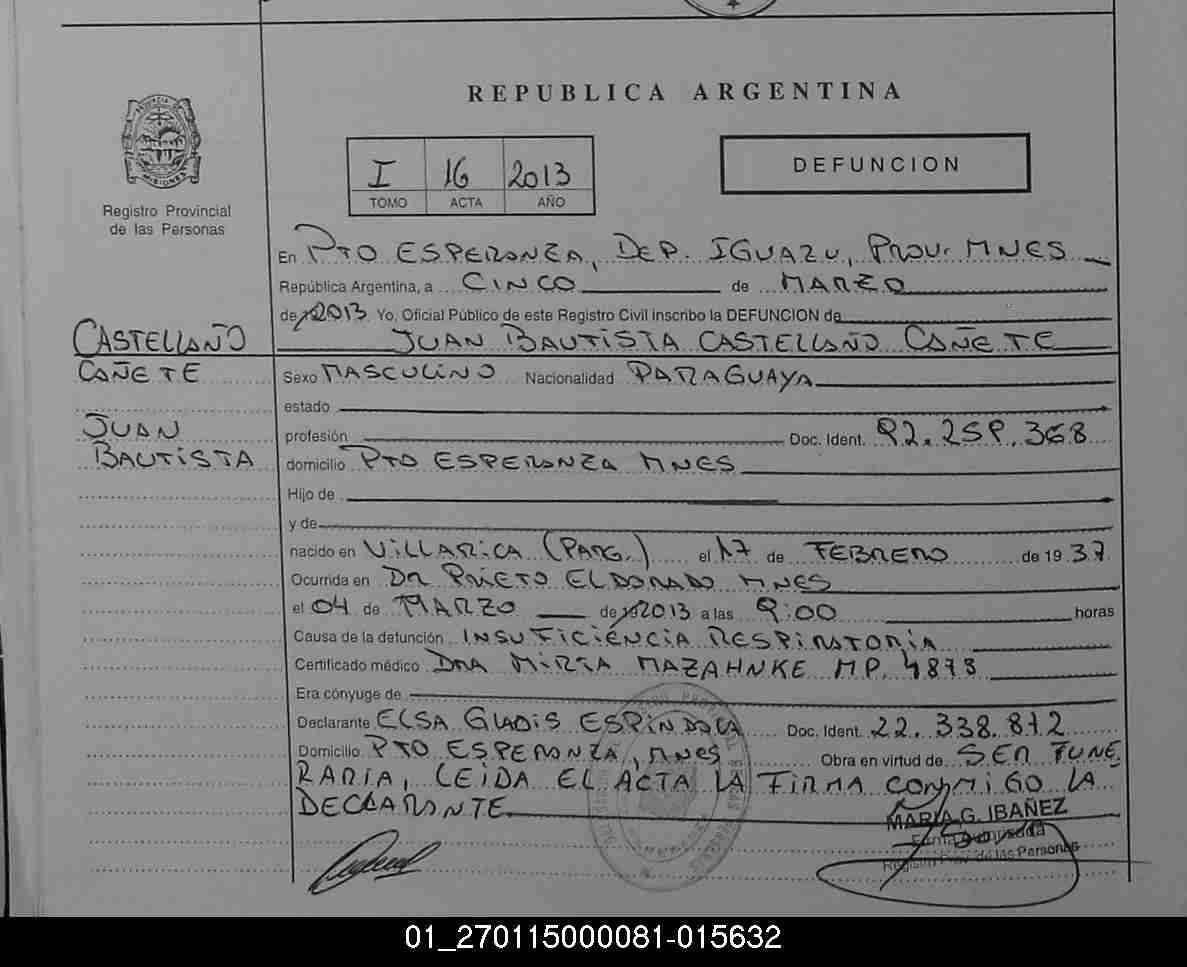 REPUBLICA ARGENTINA
I 16 2013
TOMO ACTA AÑO
DEFUNCION
Registro Provincial
de las Personas
En PTO ESPERANZA, DEP. IGUAZU, PROV. MNES
República Argentina, a CINCO de MARZO
de 2013 Yo, Oficial Público de este Registro Civil inscribo la DEFUNCION de
JUAN BAUTISTA CASTELLAÑO CAÑETE
CASTELLAÑO
CAÑETE
JUAN
BAUTISTA
Sexo MASCULINO Nacionalidad PARAGUAYA
estado
profesión Doc. Ident. 92.259.368
domicilio PTO ESPERANZA MNES
Hijo de
y de
nacido en VILLARICA (PARG.) el 17 de FEBRERO de 19 37
Ocurrida en DR PRIETO ELDORADO MNES
el 04 de MARZO de 2013 a las 9:00 horas
Causa de la defunción INSUFICIENCIA RESPIRATORIA
Certificado médico DRA MIRTA MAZAHNKE M.P. 4873
Era cónyuge de
Declarante ELSA GLADIS ESPINDOLA Doc. Ident. 22.338.872
Domicilio PTO ESPERANZA, MNES Obra en virtud de SER FUNE
RARIA, LEIDA EL ACTA LA FIRMA CONMIGO LA
DECLARANTE
MARIA G. IBAÑEZ
Firma Autorizada
Registro Prov. de las Personas
01_270115000081-015632